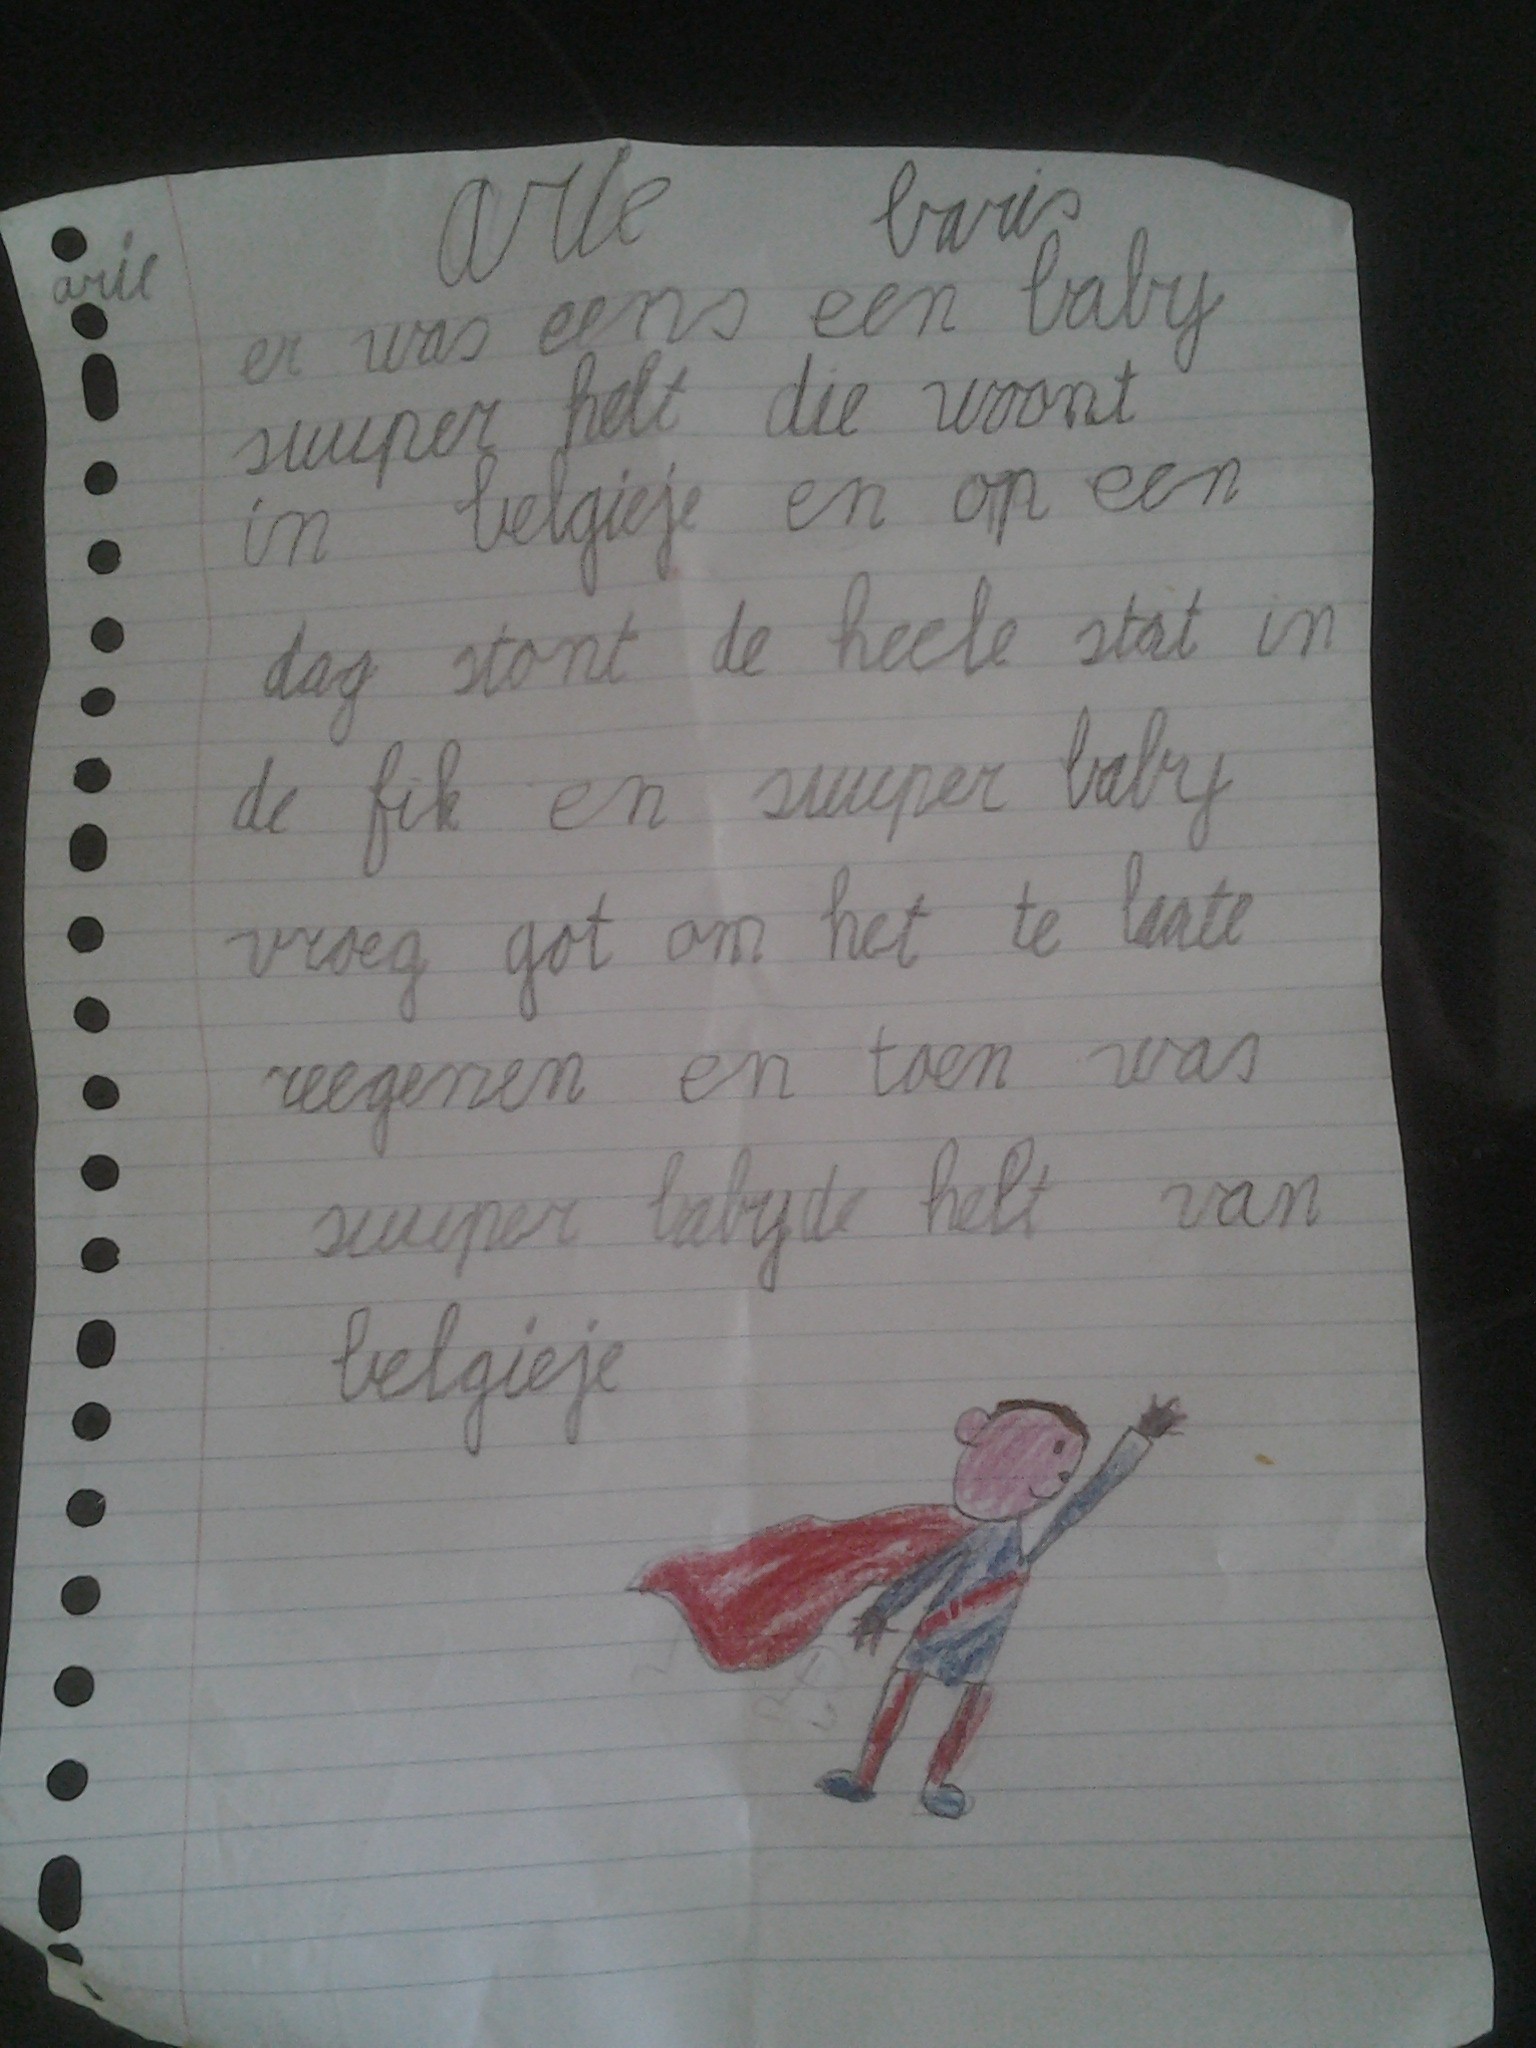 arie baris
arie
er was eens een baby
suuper helt die woont
in belgieje en op een
dag stont de heele stat in
de fik en suuper baby
vroeg got om het te laate
reegenen en toen was
suuper baby de helt van
belgieje